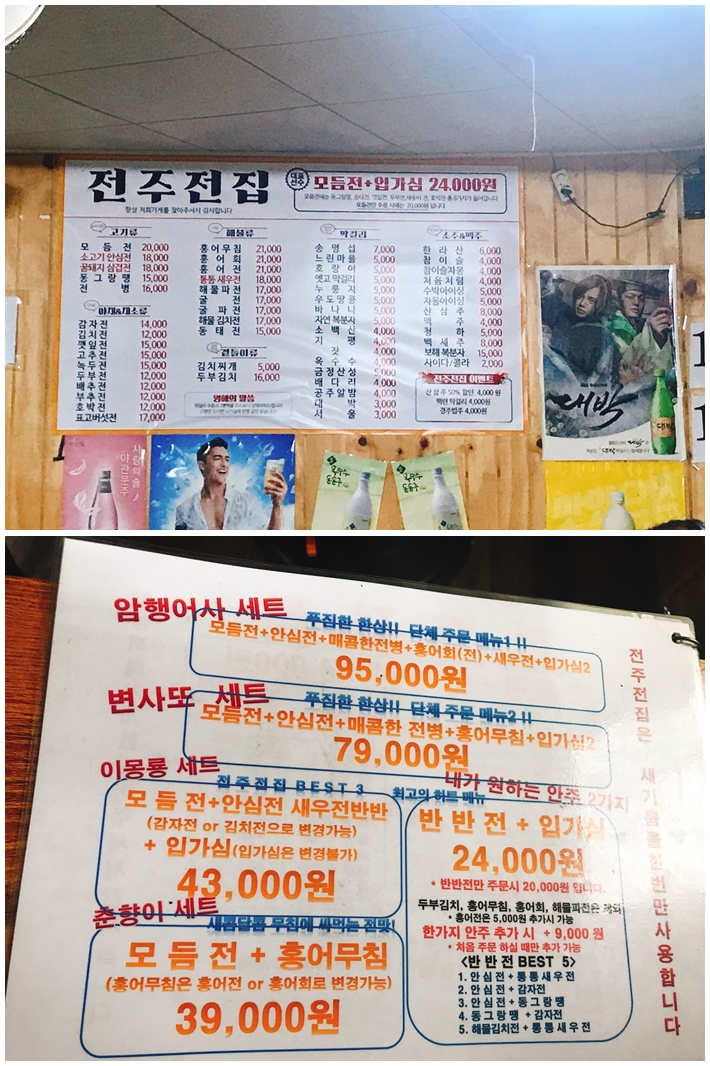 전주전집
항상 저희가게를 찾아주셔서 감사합니다
대표 선수
모듬전+입가심 24,000원
모듬전만 주문 시에는 20,000원 입니다.
고기류
모듬전 20,000
소고기 안심전 18,000
꿀돼지 삼겹전 18,000
동그랑땡 15,000
전병 16,000
야채&채소류
감자전 14,000
김치전 12,000
깻잎전 15,000
고추전 15,000
녹두전 15,000
두부전 12,000
배추전 12,000
부추전 12,000
호박전 12,000
표고버섯전 17,000
해물류
홍어무침 21,000
홍어회 21,000
홍어전 21,000
통통 새우전 18,000
해물파전 17,000
굴전 17,000
굴파전 17,000
해물김치전 17,000
동태전 15,000
곁들이류
김치찌개 5,000
두부김치 16,000
막걸리
송명섭 7,000
느린마을 5,000
호랑이 5,000
옛고 막걸리 5,000
누룽지 5,000
우도땅콩 5,000
바나나 5,000
자연 복분자 5,000
소백신 4,000
지평 4,000
잣 4,000
옥수수 4,000
금정산성 5,000
배다리 4,000
공주알밤 4,000
대박 3,000
서울 3,000
소주&맥주
한라산 6,000
참이슬 4,000
참이슬자몽 4,000
처음처럼 4,000
수박아이싱 5,000
자몽아이싱 5,000
산삼주 8,000
맥주 4,000
청하 5,000
백세주 8,000
보해 복분자 15,000
사이다/콜라 2,000
전주전집 이벤트
산삼주 50% 할인 4,000 원
백련 막걸리 4,000원
경주법주 4,000원
대박
사랑의술
야관문주
옥수수
동동주
옥수수
동동주
암행어사 세트
푸짐한 한상!! 단체 주문 메뉴1 !!
모듬전+안심전+매콤한전병+홍어회(전)+새우전+입가심2
95,000원
변사또 세트
푸짐한 한상!! 단체 주문 메뉴2 !!
모듬전+안심전+매콤한 전병+홍어무침+입가심2
79,000원
이몽룡 세트
전주전집 BEST 3
모듬전+안심전 새우전반반
(감자전 or 김치전으로 변경가능)
+ 입가심(입가심은 변경불가)
43,000원
춘향이 세트
새콤달콤 무침에 싸먹는 점맛!
모듬전 + 홍어무침
(홍어무침은 홍어전 or 홍어회로 변경가능)
39,000원
내가 원하는 안주 2가지
최고의 히트 메뉴
반반전 + 입가심
24,000원
* 반반전만 주문시 20,000원 입니다.
두부김치, 홍어무침, 홍어회, 해물파전은 제외
* 홍어전은 5,000원 추가시 가능
한가지 안주 추가 시 + 9,000 원
* 처음 주문 하실 때만 추가 가능
<반반전 BEST 5>
1. 안심전+통통새우전
2. 안심전+감자전
3. 안심전+동그랑땡
4. 동그랑땡 +감자전
5. 해물김치전+통통새우전
전주전집은 새기름을한번만사용합니다